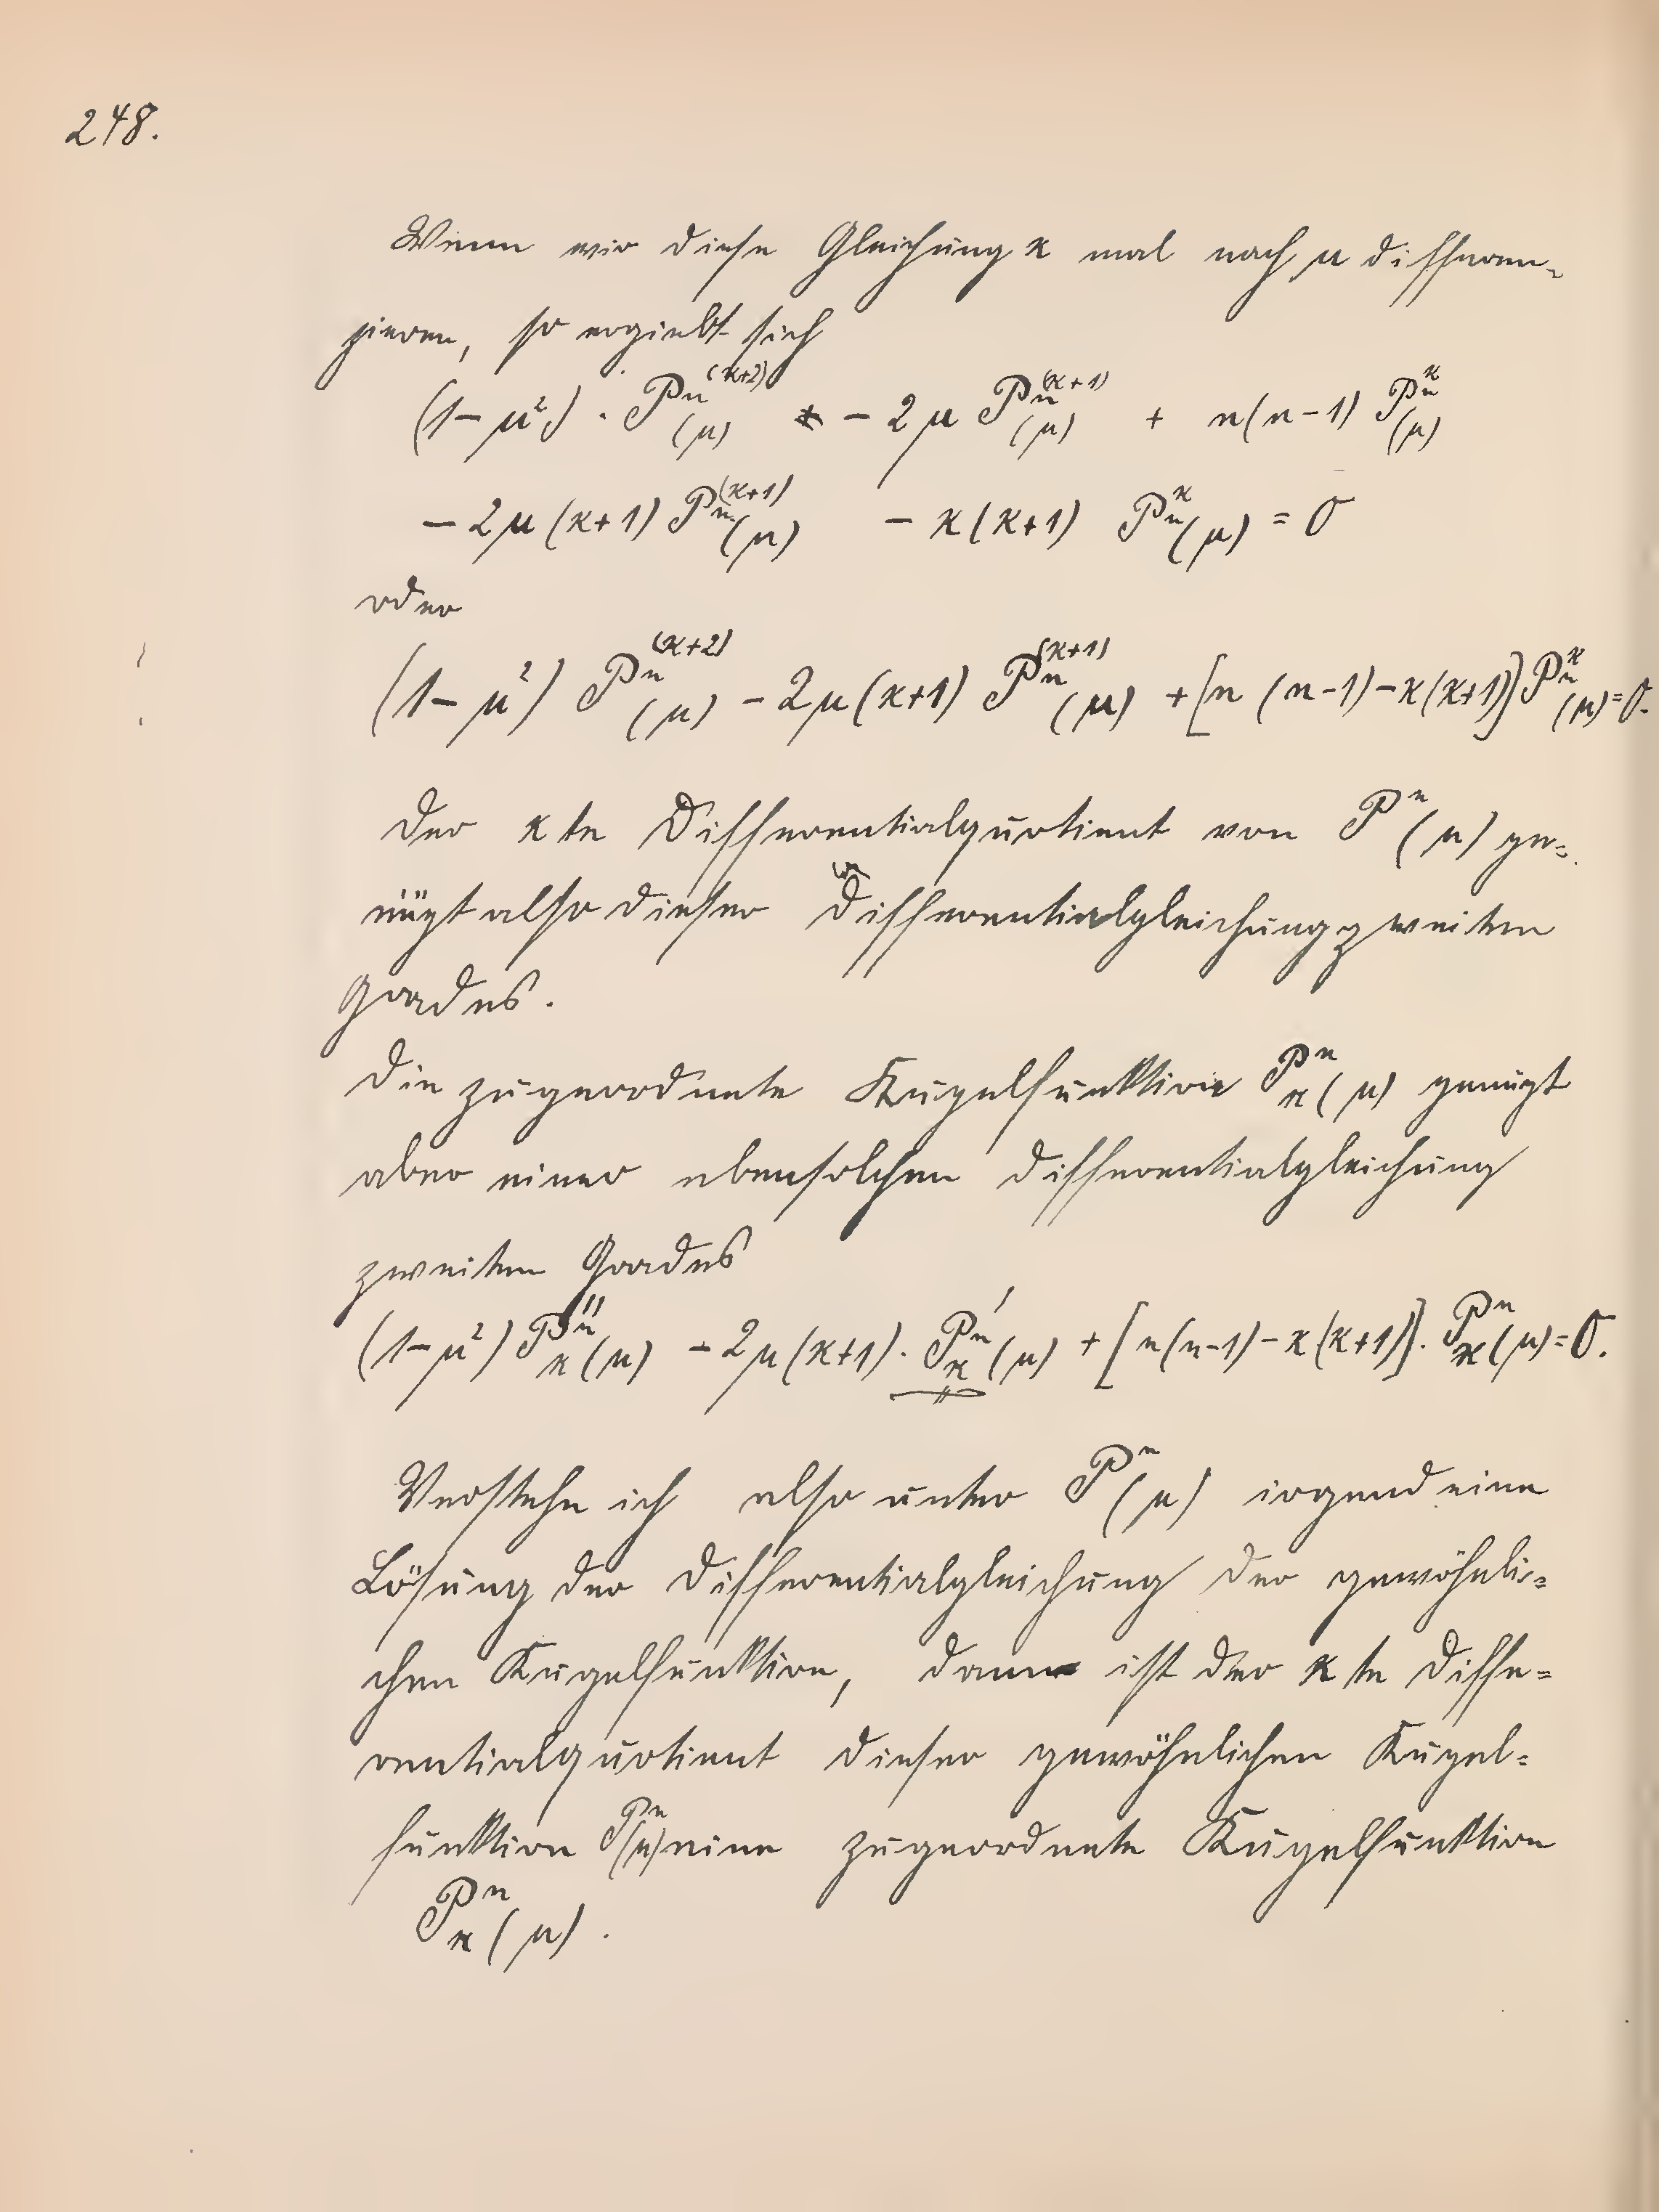 248.
Wenn wir diese Gleichung κ mal nach μ differen-
zieren, so ergiebt sich
(1-μ²) · Pn^(κ+2)(μ) - 2μ Pn^(κ+1)(μ) + n(n-1) Pn^κ(μ)
- 2μ(κ+1) Pn^(κ+1)(μ) - κ(κ+1) Pn^κ(μ) = 0
oder
(1-μ²) Pn^(κ+2)(μ) - 2μ(κ+1) Pn^(κ+1)(μ) + [n (n-1) - κ(κ+1)] Pn^κ(μ) = 0.
Der κte Differentialquotient von P^n(μ) ge=
nügt also dieser Differentialgleichung zweiten
Grades.
Die zugeordnete Kugelfunktion P^n_κ(μ) genügt
aber einer ebensolchen Differentialgleichung
zweiten Grades
(1-μ²) P^n_κ''(μ) - 2μ(κ+1) · P^n_κ'(μ) + [n(n-1) - κ(κ+1)] · P^n_κ(μ) = 0.
Verstehe ich also unter P^n(μ) irgend eine
Lösung der Differentialgleichung der gewöhnli=
chen Kugelfunktion, dann ist der κte Diffe=
rentialquotient dieser gewöhnlichen Kugel=
funktion P^n(μ) eine zugeordnete Kugelfunktion
P^n_κ(μ).